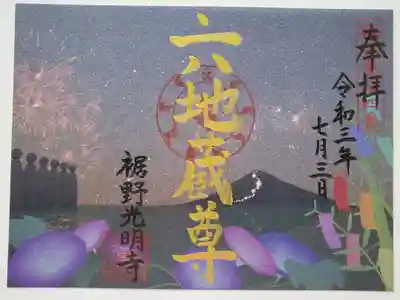 奉拝
令和三年
七月三日
六地蔵尊
裾野光明寺